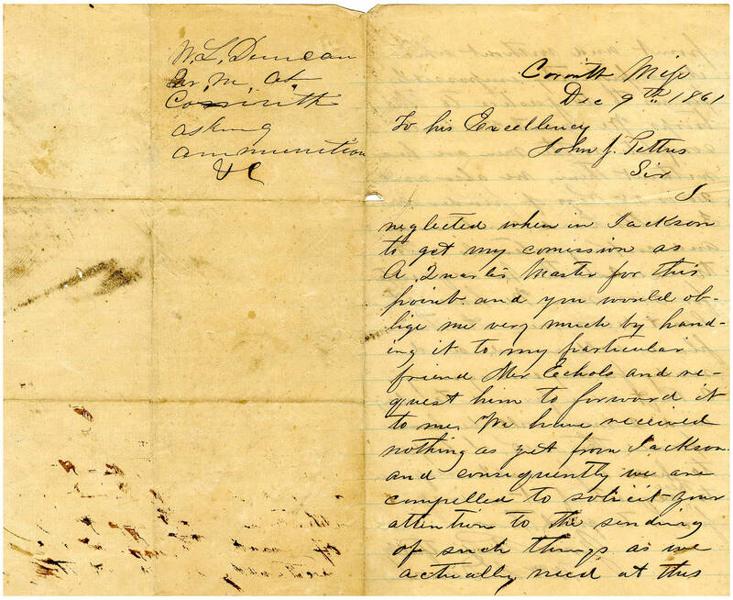 W. L. Duncan
Qr. M. at
Corinth
asking
ammunition
&C
Corinth Miss
Dec 9th 1861
To his Excellency
John J. Pettus
Sir
I
neglected when in Jackson
to get my comission as
A. Quarter Master for this
point and you would ob-
lige me very much by hand-
ing it to my particular
friend Mr Echols and re-
quest him to forward it
to me, We have received
nothing as yet from Jackson
and consequently we are
compelled to solicit your
attention to the sending
of such things as we
actually need at this